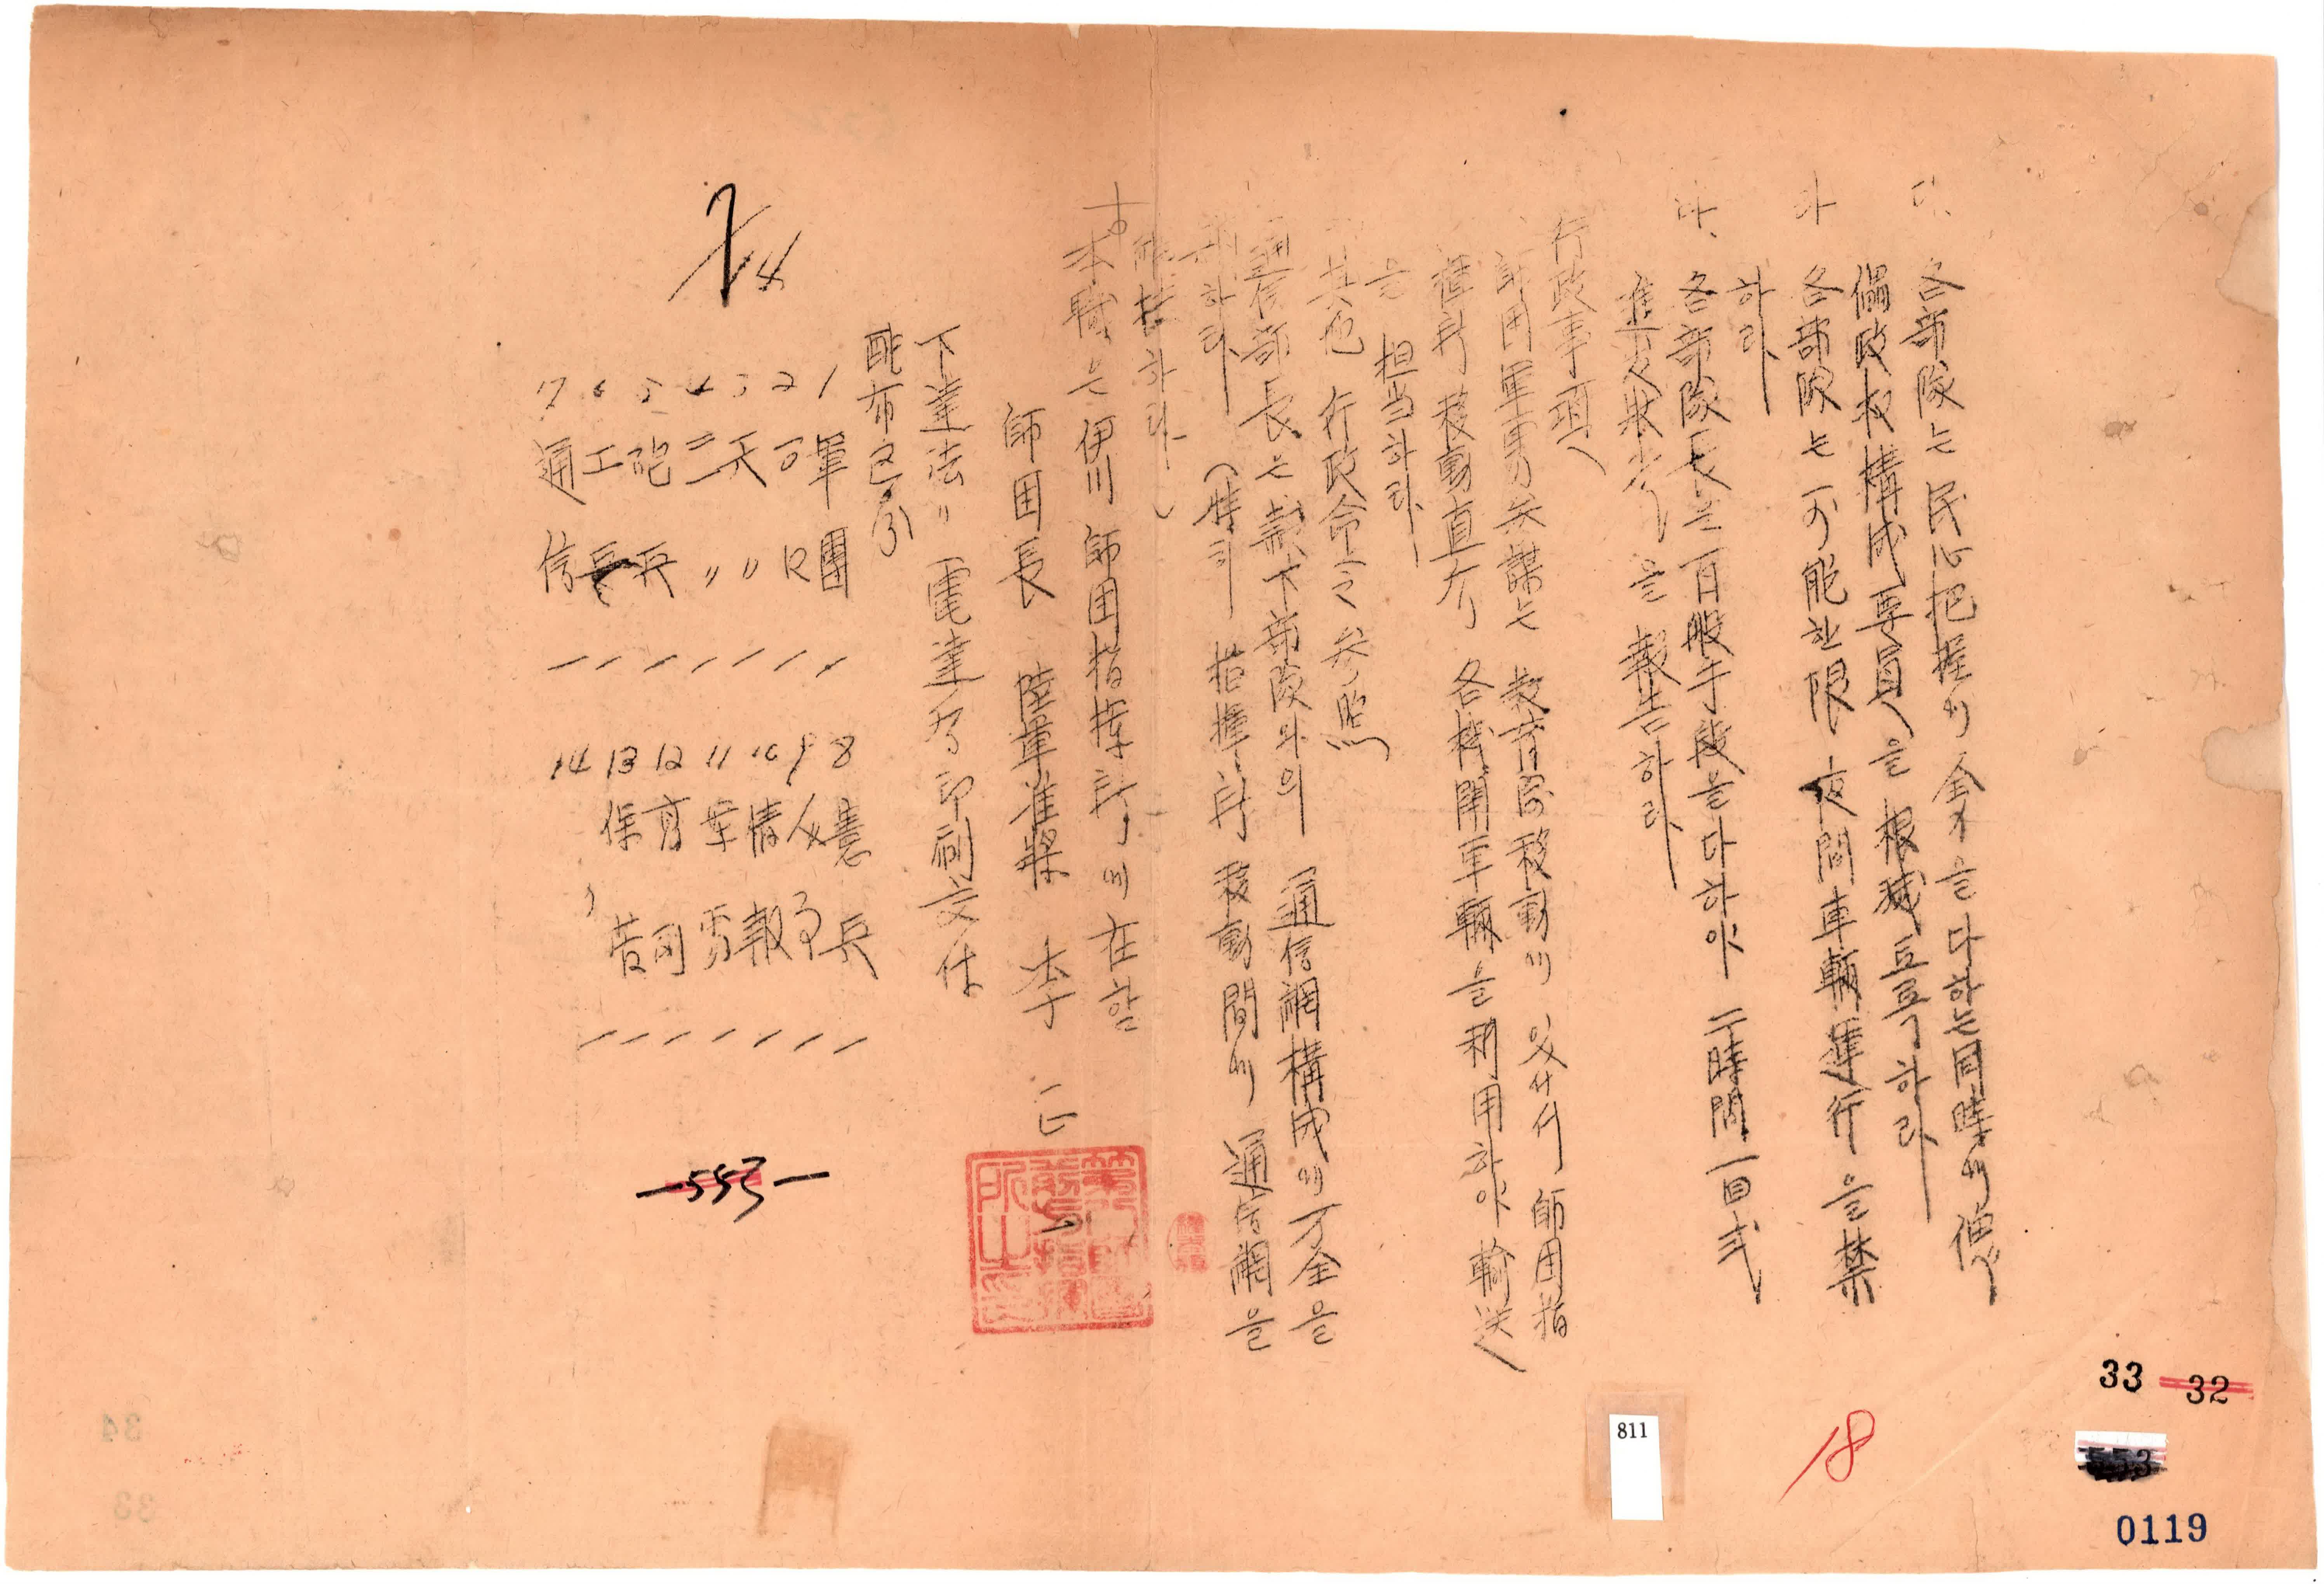 다. 各部隊는 民心把握에 全力을 다하는 同時에 傀
儡政权構成要員을 根滅토록 하라
라 各部隊는 可能한 限 夜間車輛運行을 禁
하라
마. 各部隊長은 百般手段을 다하야 二時間一回式
進攻狀況을 報告하라
行政事項
師団軍需参謀는 教育隊移動에 있어서 師団指
揮所 移動直后 各機関車輛을 利用하야 輸送
을 担当하라
其他 行政命令参照
通信部長은 隷下部隊와의 通信網構成에 万全을
期하라 (特히 指揮所 移動間에 通信網을
確保하라)
本職은 伊川 師団指揮所에 在함
師団長 陸軍准將 李
下達法 〃 電達后 印刷交付
配布区分
1 軍團 /
2
3 〃 /
4 二 〃 /
5 砲兵 /
6 工兵 /
7 通信 /
8 憲兵 /
9 人事 /
10 情報 /
11 軍需 /
12
13
14
2/4
553
33 32
18
811
553
0119
34
33